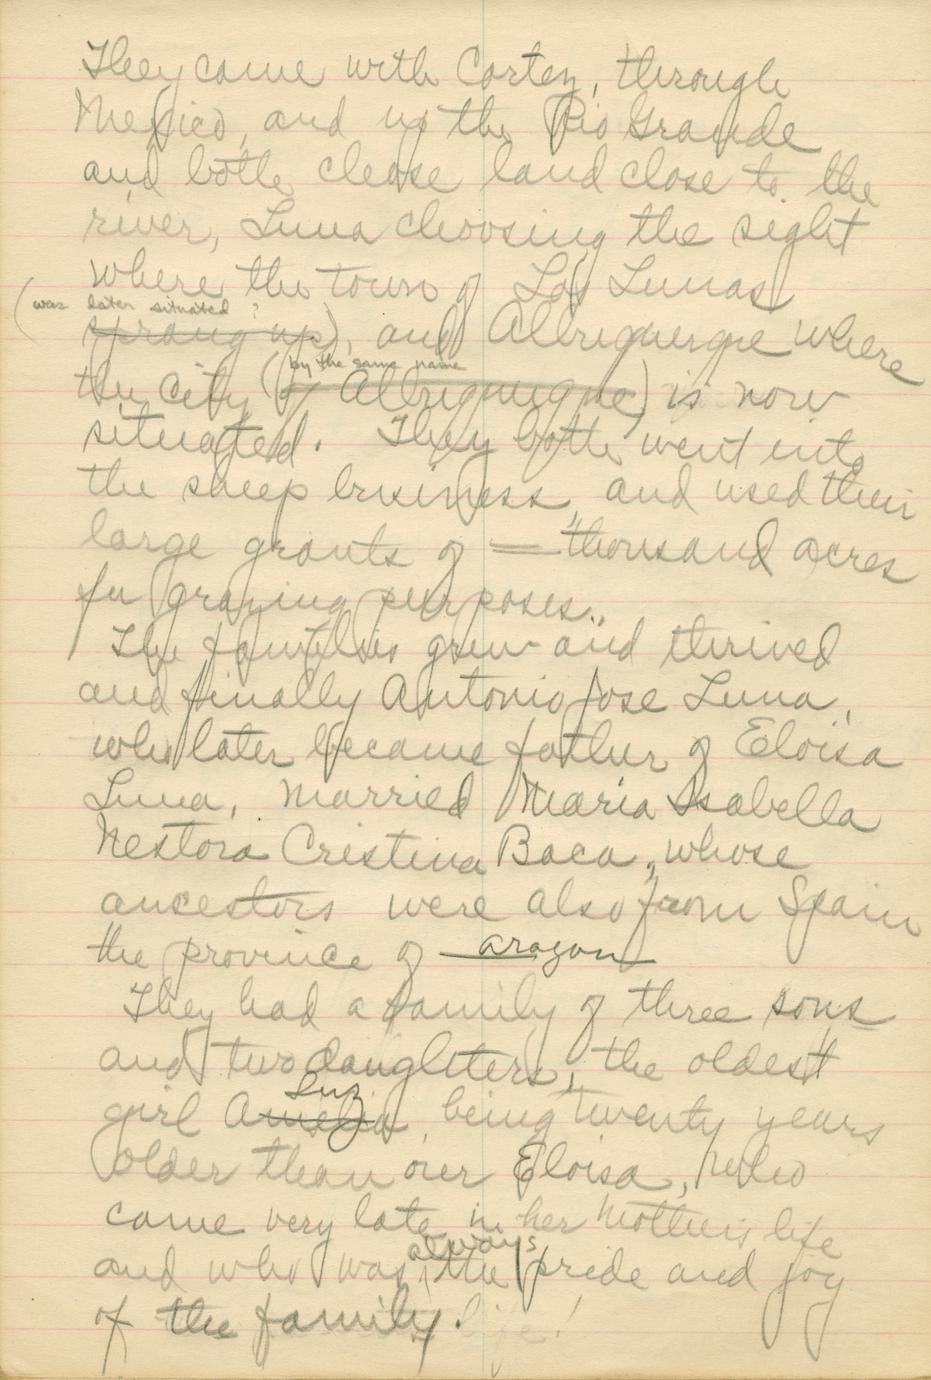 They came with Cortez, through
Mexico, and up the Rio Grande
and both chose land close to the
river, Luna choosing the sight
where the town of Los Lunas
(was later situated ?
sprang up), and Albuquerque where
by the same name
the city (of Albuquerque) is now
situated. They both went into
the sheep business, and used their
large grants of — thousand acres
for grazing purposes.
The families grew and thrived
and finally Antonio Jose Luna,
who later became father of Eloisa
Luna, married Maria Isabella
Nestora Cristina Baca, whose
ancestors were also from Spain
the province of aragon
They had a family of three sons
and two daughters, the oldest
Luz
girl Amelia, being twenty years
older than our Eloisa, who
came very late in her mothers life
always
and who was the pride and joy
of the family. life!